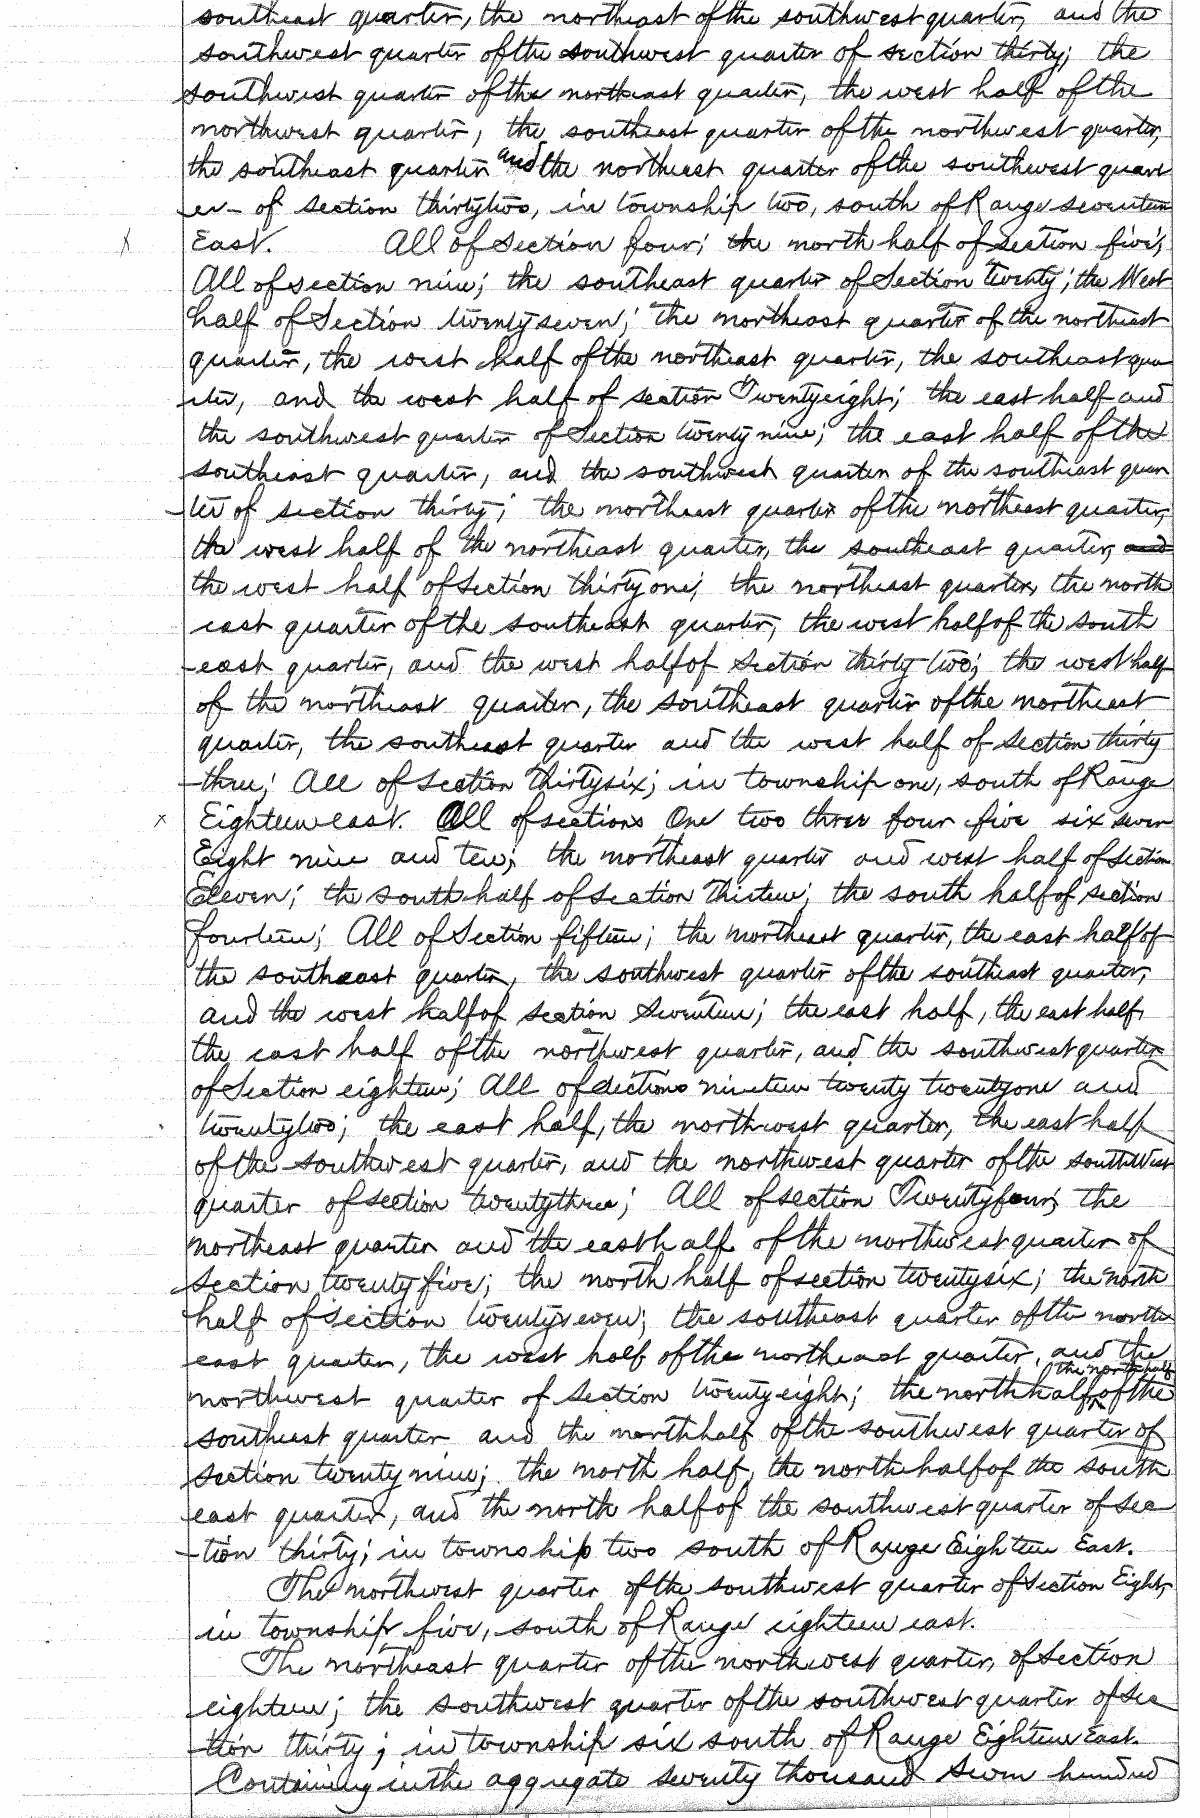 southeast quarter, the northeast of the southwest quarter, and the
southwest quarter of the southwest quarter of section thirty; the
southwest quarter of the northeast quarter, the west half of the
northwest quarter, the southeast quarter of the northwest quarter,
the southeast quarter and the northeast quarter of the southwest quart
er- of section thirtytwo, in township two, south of Range seventeen
x East. All of Section four; the north half of section five;
All of section nine; the southeast quarter of Section twenty; the West
half of Section twentyseven; the northeast quarter of the northeast
quarter, the west half of the northeast quarter, the southeast qua
rter, and the west half of section Twentyeight; the east half and
the southwest quarter of Section twentynine; the east half of the
southeast quarter, and the southwest quarter of the southeast quar
-ter of section thirty; the northeast quarter of the northeast quarter,
the west half of the northeast quarter, the southeast quarter, and
the west half of Section thirtyone; the northeast quarter, the north
east quarter of the southeast quarter, the west half of the south
-east quarter, and the west half of section thirty two; the west half
of the northeast quarter, the southeast quarter of the northeast
quarter, the southeast quarter and the west half of section thirty
-three; All of section thirtysix; in township one, south of Range
x Eighteen east. All of sections One two three four five six seven
Eight nine and ten; the northeast quarter and west half of section
Eleven; the south half of section thirteen; the south half of section
fourteen; All of Section fifteen; the northeast quarter, the east half of
the southeast quarter, the southwest quarter of the southeast quarter,
and the west half of section seventeen; the east half, the east half,
the east half of the northwest quarter, and the southwest quarter
of Section eighteen; All of sections nineteen twenty twentyone and
twentytwo; the east half, the northwest quarter, the east half
of the southwest quarter, and the northwest quarter of the southwest
quarter of section twentythree; All of section Twentyfour; the
northeast quarter and the east half of the northwest quarter of
section twentyfive; the north half of section twentysix; the north
half of section twentyseven; the southeast quarter of the north
east quarter, the west half of the northeast quarter, and the
the north half
northwest quarter of section twentyeight; the north half, of the
southeast quarter and the north half of the southwest quarter of
section twenty nine; the north half, the north half of the south
east quarter, and the north half of the southwest quarter of sec
-tion thirty; in township two south of Range Eighteen East.
The northwest quarter of the southwest quarter of Section Eight,
in township five, south of Range eighteen east.
The northeast quarter of the northwest quarter, of section
eighteen; the southwest quarter of the southwest quarter of sec
-tion thirty; in township six south of Range Eighteen East.
Containing in the aggregate seventy thousand seven hundred